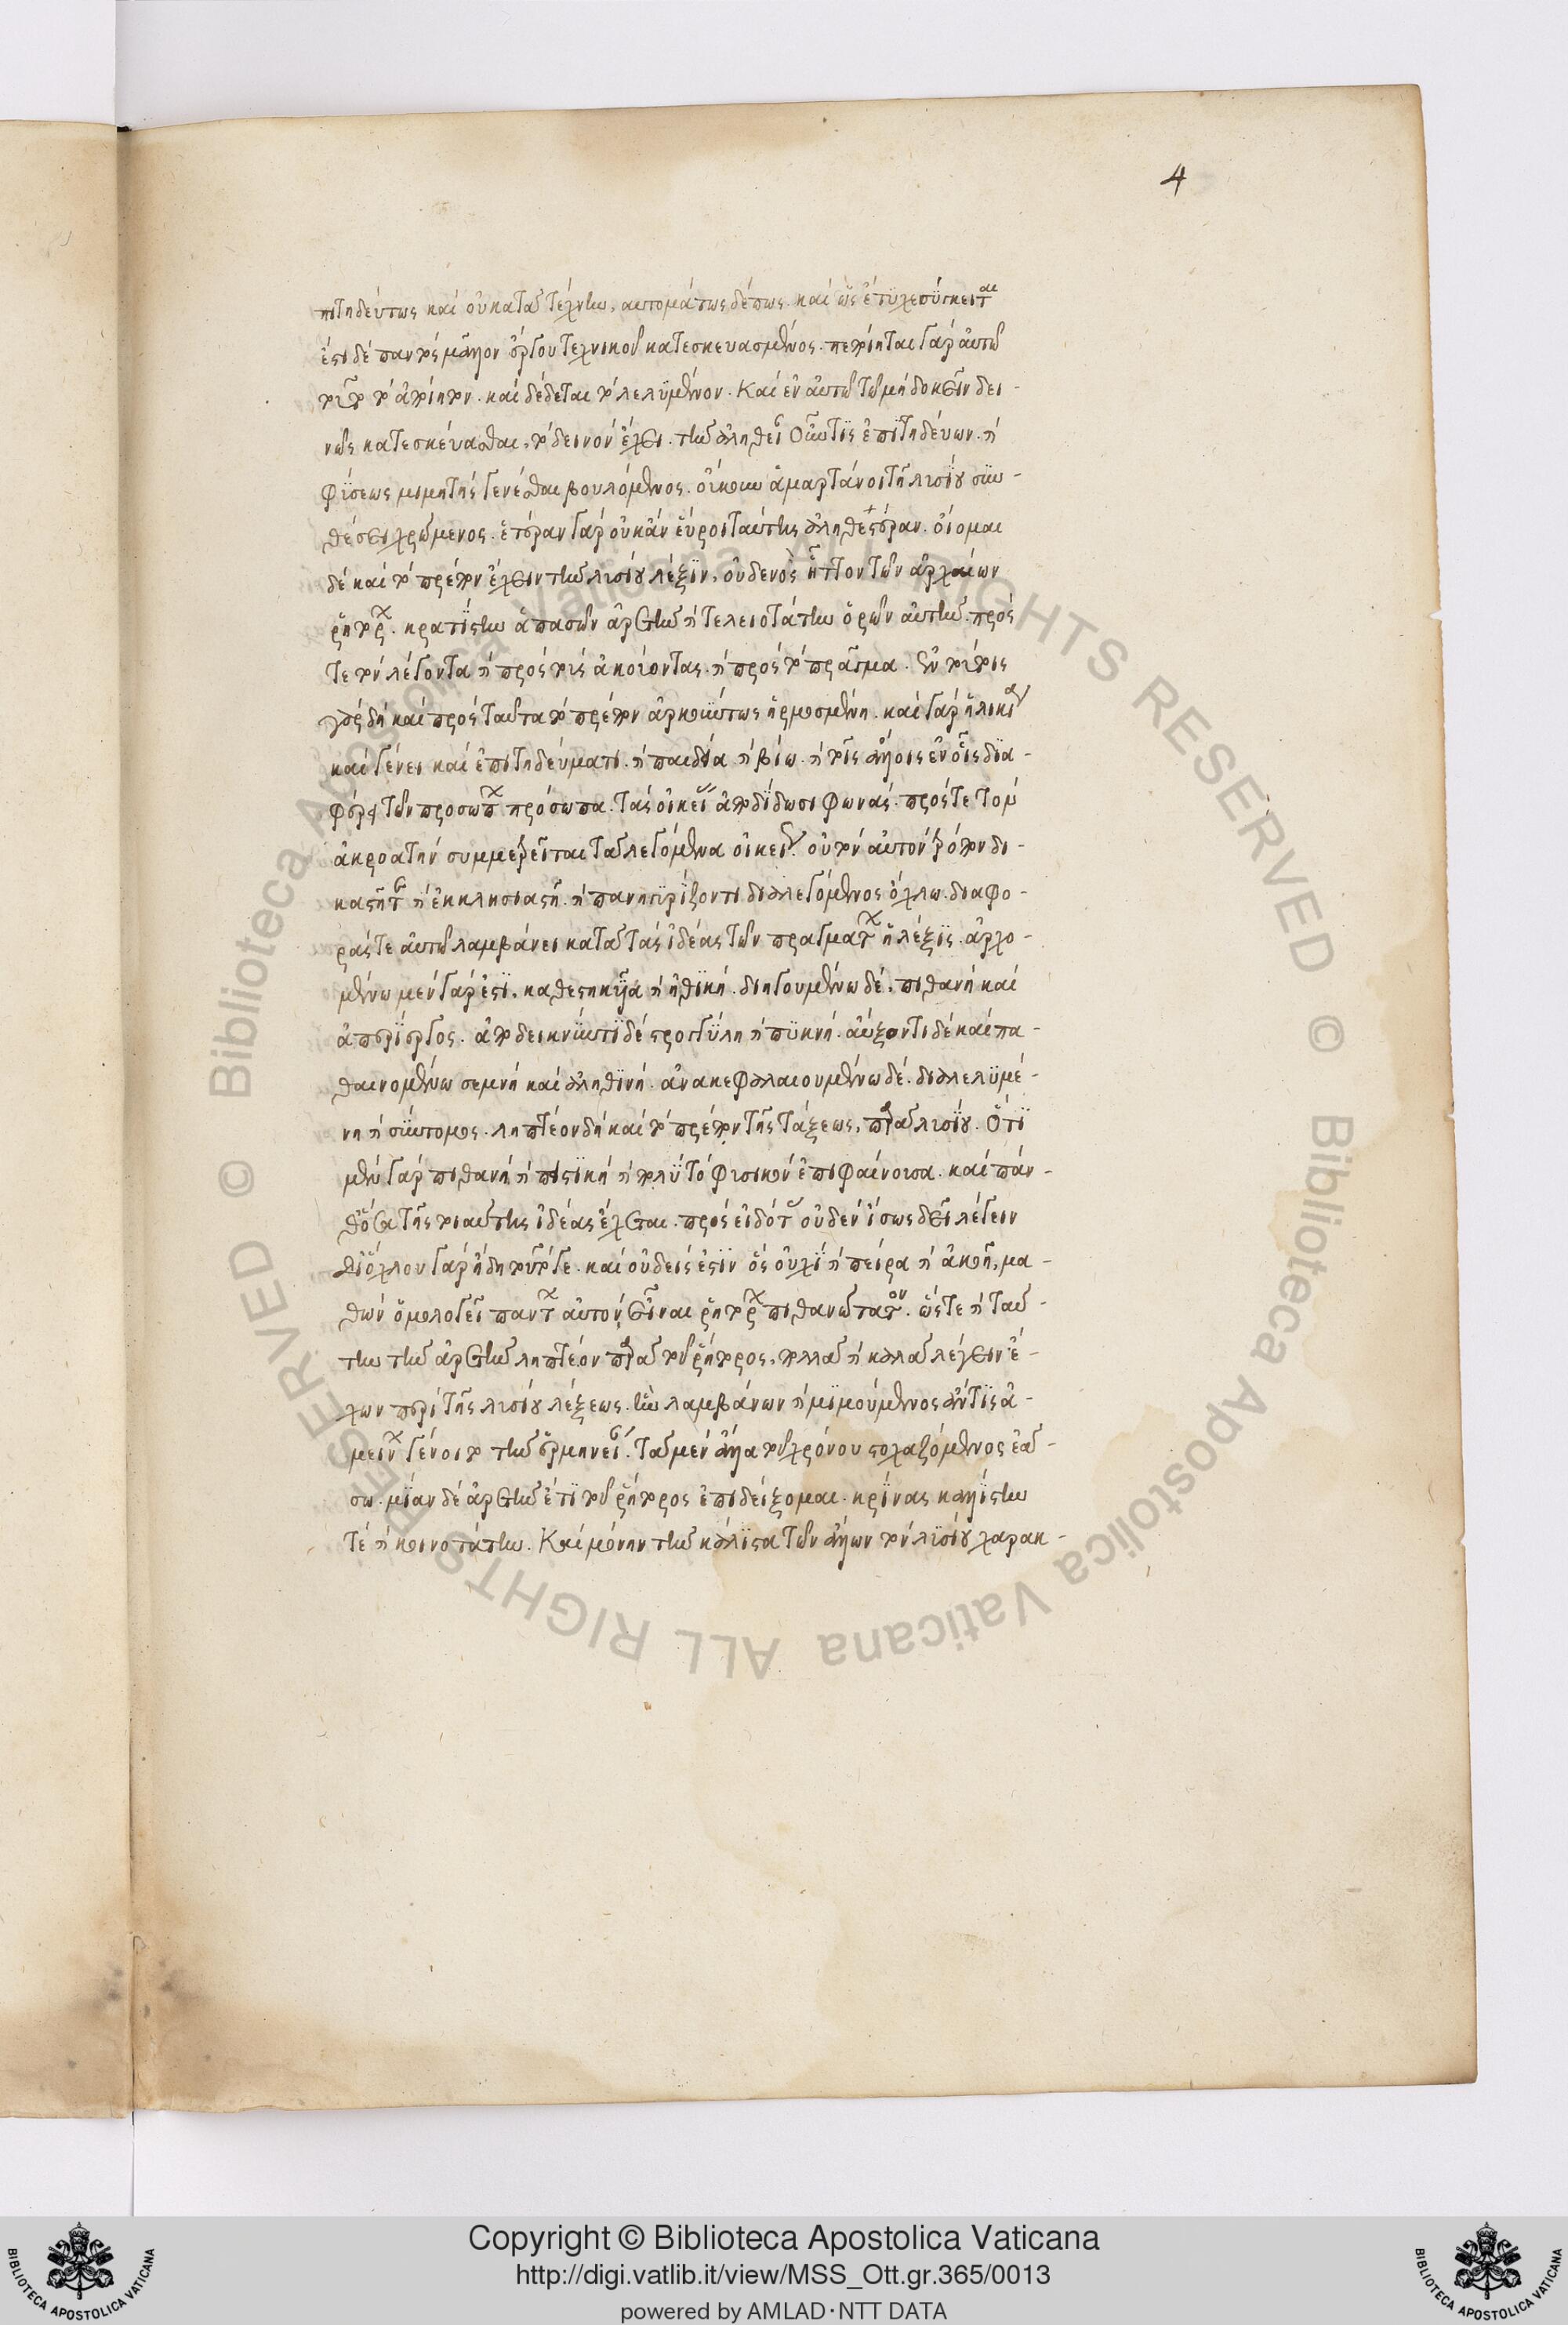 4
πιτηδεύτως καὶ οὐ κατὰ τέχνην, αὐτομάτως δέ πως. καὶ ὡς ἔτυχε σύγκειται
ἔστι δὲ παντὸς μᾶλλον ἔργου τεχνικοῦ κατεσκευασμένος. πεποίηται γὰρ αὐτῶ
τοῦτο τὸ ἀποίητον. καὶ δέδεται τὸ λελυμένον. καὶ ἐν αὐτῶ τῶ μὴ δοκεῖν δει-
νῶς κατεσκευάσθαι, τὸ δεινὸν ἔχει. τὴν ἀλήθειαν οὖν τις ἐπιτηδεύων. καὶ
φύσεως μιμητὴς γενέσθαι βουλόμενος. οὐκ ἂν ἁμαρτάνοι τῆ λυσίου συν-
θέσει χρώμενος. ἑτέραν γὰρ οὐκ ἂν εὕροι ταύτης ἀληθεστέραν. οἴομαι
δὲ καὶ τὸ πρέπον ἔχειν τὴν λυσίου λέξιν, οὐδενὸς ἧττον τῶν ἀρχαίων
ῥητόρων. κρατίστην ἁπασῶν ἀρετὴν καὶ τελειοτάτην ὁρῶν αὐτὴν. πρός
τε τὸν λέγοντα καὶ πρὸς τοὺς ἀκούοντας. καὶ πρὸς τὸ πρᾶγμα. ἐν τούτοις
γὰρ δὴ καὶ πρὸς ταῦτα τὸ πρέπον ἀρκούντως ἡρμοσμένη. καὶ γὰρ ἡλικία
καὶ γένει καὶ ἐπιτηδεύματι. καὶ παιδεία καὶ βίω. καὶ τοῖς ἄλλοις ἐν οἷς δια-
φέρει τῶν προσώπων πρόσωπα. τὰς οἰκείας ἀποδίδωσι φωνάς. πρός τε τὸν
ἀκροατὴν συμμετρεῖται τὰ λεγόμενα οἰκείως. οὐ τὸν αὐτὸν τρόπον δι-
καστῆ τε καὶ ἐκκλησιαστῆ. καὶ πανηγυρίζοντι διαλεγόμενος ὄχλω. διαφο-
ράς τε αὐτῶ λαμβάνει κατὰ τὰς ἰδέας τῶν πραγμάτων ἡ λέξις. ἀρχο-
μένω μὲν γάρ ἐστι, καθεστηκυῖα καὶ ἠθική. διηγουμένω δέ, πιθανὴ καὶ
ἀπερίεργος. ἀποδεικνύντι δὲ στρογγύλη καὶ πυκνή. αὔξοντι δὲ καὶ πα-
θαινομένω σεμνὴ καὶ ἀληθινή. ἀνακεφαλαιουμένω δέ. διαλελυμέ-
νη καὶ σύντομος. ληπτέον δὴ καὶ τὸ πρέπον τῆς τάξεως, παρὰ λυσίου. ὅτι
μὲν γὰρ πιθανὴ καὶ πιστικὴ καὶ πολὺ τὸ φυσικὸν ἐπιφαίνουσα. καὶ πάν-
θ' ὅσα τῆς τοιαύτης ἰδέας ἔχεται. πρὸς εἰδότας οὐδὲν ἴσως δεῖ λέγειν
δι' ὄχλου γὰρ ἤδη τοῦτό γε. καὶ οὐδείς ἐστιν ὃς οὐχὶ καὶ πείρα καὶ ἀκοῆ, μα-
θὼν ὁμολογεῖ πάντων αὐτόν, εἶναι ῥητόρων πιθανώτατον. ὥστε καὶ ταύ-
την τὴν ἀρετὴν ληπτέον παρὰ τοῦ ῥήτορος, πολλὰ καὶ καλὰ λέγειν ἔ-
χων περὶ τῆς λυσίου λέξεως. ἣν λαμβάνων καὶ μιμούμενος ἄν τις ἀ-
μείνων γένοιτο τὴν ἑρμηνείαν. τὰ μὲν ἄλλα τοῦ χρόνου στοχαζόμενος ἐά-
σω. μίαν δὲ ἀρετὴν ἔτι τοῦ ῥήτορος ἐπιδείξομαι. κρίνας καλλίστην
τὲ καὶ κοινοτάτην. καὶ μόνην τὴν μάλιστα τῶν ἄλλων τὸν λυσίου χαρακ-
© Biblioteca Apostolica Vaticana ALL RIGHTS RESERVED © Biblioteca Apostolica Vaticana ALL RIGHTS RESERVED
Copyright © Biblioteca Apostolica Vaticana
http://digi.vatlib.it/view/MSS_Ott.gr.365/0013
powered by AMLAD·NTT DATA
BIBLIOTECA APOSTOLICA VATICANA
BIBLIOTECA APOSTOLICA VATICANA